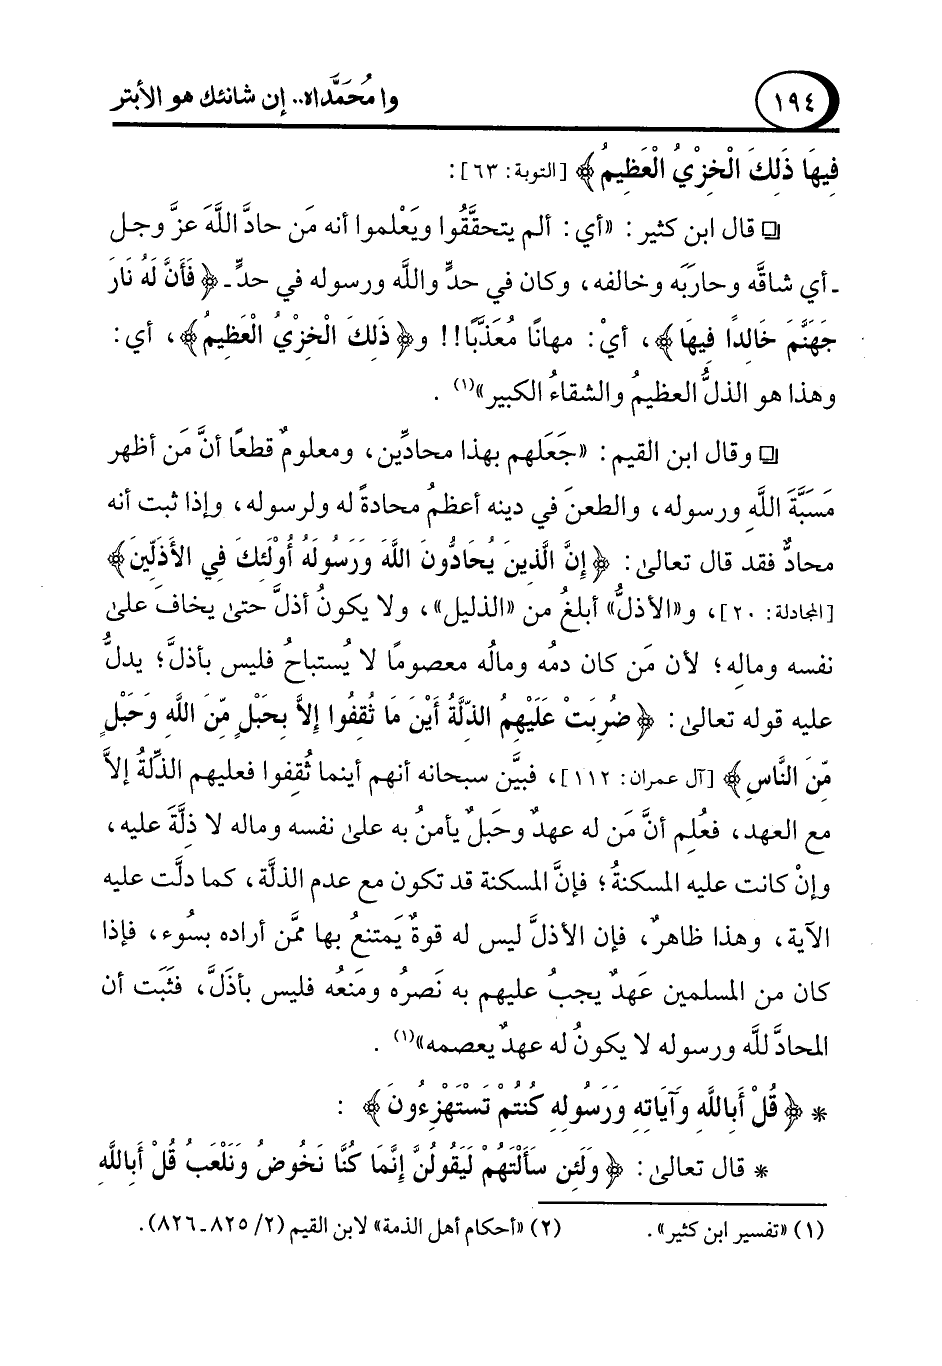 ١٩٤ وا مُحَمَّداه.. إن شانئك هو الأبتر
فِيهَا ذَلِكَ الْخِزْيُ الْعَظِيمُ﴾ [التوبة: ٦٣]:
❏ قال ابن كثير: «أي: ألم يتحقَّقُوا ويَعْلموا أنه مَن حادَّ اللَّهَ عزَّ وجل
ـ أي شاقَّه وحارَبَه وخالفه، وكان في حدٍّ واللَّه ورسوله في حدٍّ ـ ﴿فَأَنَّ لَهُ نَارَ
جَهَنَّمَ خَالِدًا فِيهَا﴾، أيْ: مهانًا مُعَذَّبًا!! و﴿ذَلِكَ الْخِزْيُ الْعَظِيمُ﴾، أي:
وهذا هو الذلُّ العظيمُ والشقاءُ الكبير»(١).
❏ وقال ابن القيم: «جَعَلهم بهذا محادِّين، ومعلومٌ قطعًا أنَّ مَن أظهر
مَسَبَّةَ اللَّهِ ورسوله، والطعنَ في دينه أعظمُ محادةً له ولرسوله، وإذا ثبت أنه
محادٌّ فقد قال تعالى: ﴿إِنَّ الَّذِينَ يُحَادُّونَ اللَّهَ وَرَسُولَهُ أُوْلَئِكَ فِي الأَذَلِّينَ﴾
[المجادلة: ٢٠]، و«الأذلُّ» أبلغُ من «الذليل»، ولا يكونُ أذلَّ حتى يخافَ على
نفسه ومالِه؛ لأن مَن كان دمُه ومالُه معصومًا لا يُستباحُ فليس بأذلَّ؛ يدلُّ
عليه قوله تعالى: ﴿ضُرِبَتْ عَلَيْهِمُ الذِّلَّةُ أَيْنَ مَا ثُقِفُوا إِلاَّ بِحَبْلٍ مِّنَ اللَّهِ وَحَبْلٍ
مِّنَ النَّاسِ﴾ [آل عمران: ١١٢]، فبيَّن سبحانه أنهم أينما ثُقِفوا فعليهم الذِّلةُ إلاَّ
مع العهد، فعُلِم أنَّ مَن له عهدٌ وحَبلٌ يأمنُ به على نفسه وماله لا ذِلَّةَ عليه،
وإنْ كانت عليه المسكنةُ؛ فإنَّ المسكنة قد تكون مع عدم الذلَّة، كما دلَّت عليه
الآية، وهذا ظاهرٌ، فإن الأذلَّ ليس له قوةٌ يَمتنعُ بها ممَّن أراده بسُوء، فإذا
كان من المسلمين عَهدٌ يجبُ عليهم به نَصرُه ومَنعُه فليس بأذَلَّ، فثَبَت أن
المحادَّ للَّه ورسوله لا يكونُ له عهدٌ يعصمه»(١).
* ﴿قُلْ أَبِاللَّهِ وَآيَاتِهِ وَرَسُولِهِ كُنتُمْ تَسْتَهْزِءُونَ﴾:
* قال تعالى: ﴿وَلَئِن سَأَلْتَهُمْ لَيَقُولُنَّ إِنَّمَا كُنَّا نَخُوضُ وَنَلْعَبُ قُلْ أَبِاللَّهِ
(١) «تفسير ابن كثير». (٢) «أحكام أهل الذمة» لابن القيم (٢/ ٨٢٥ـ ٨٢٦).